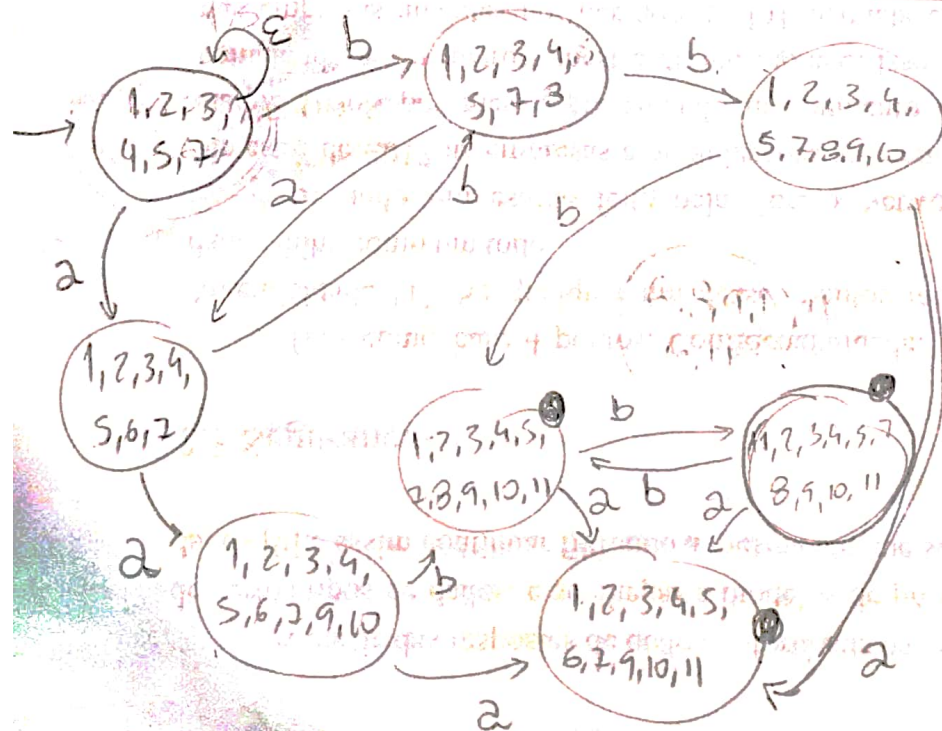 ε
b
1,2,3,
4,5,7
1,2,3,4,
5,7,8
b
1,2,3,4,
5,7,8,9,10
a
b
b
a
1,2,3,4,
5,6,7
1,2,3,4,5,
7,8,9,10,11
b
b
1,2,3,4,5,7
8,9,10,11
a
a
a
1,2,3,4,
5,6,7,9,10
b
1,2,3,4,5,
6,7,9,10,11
a
a